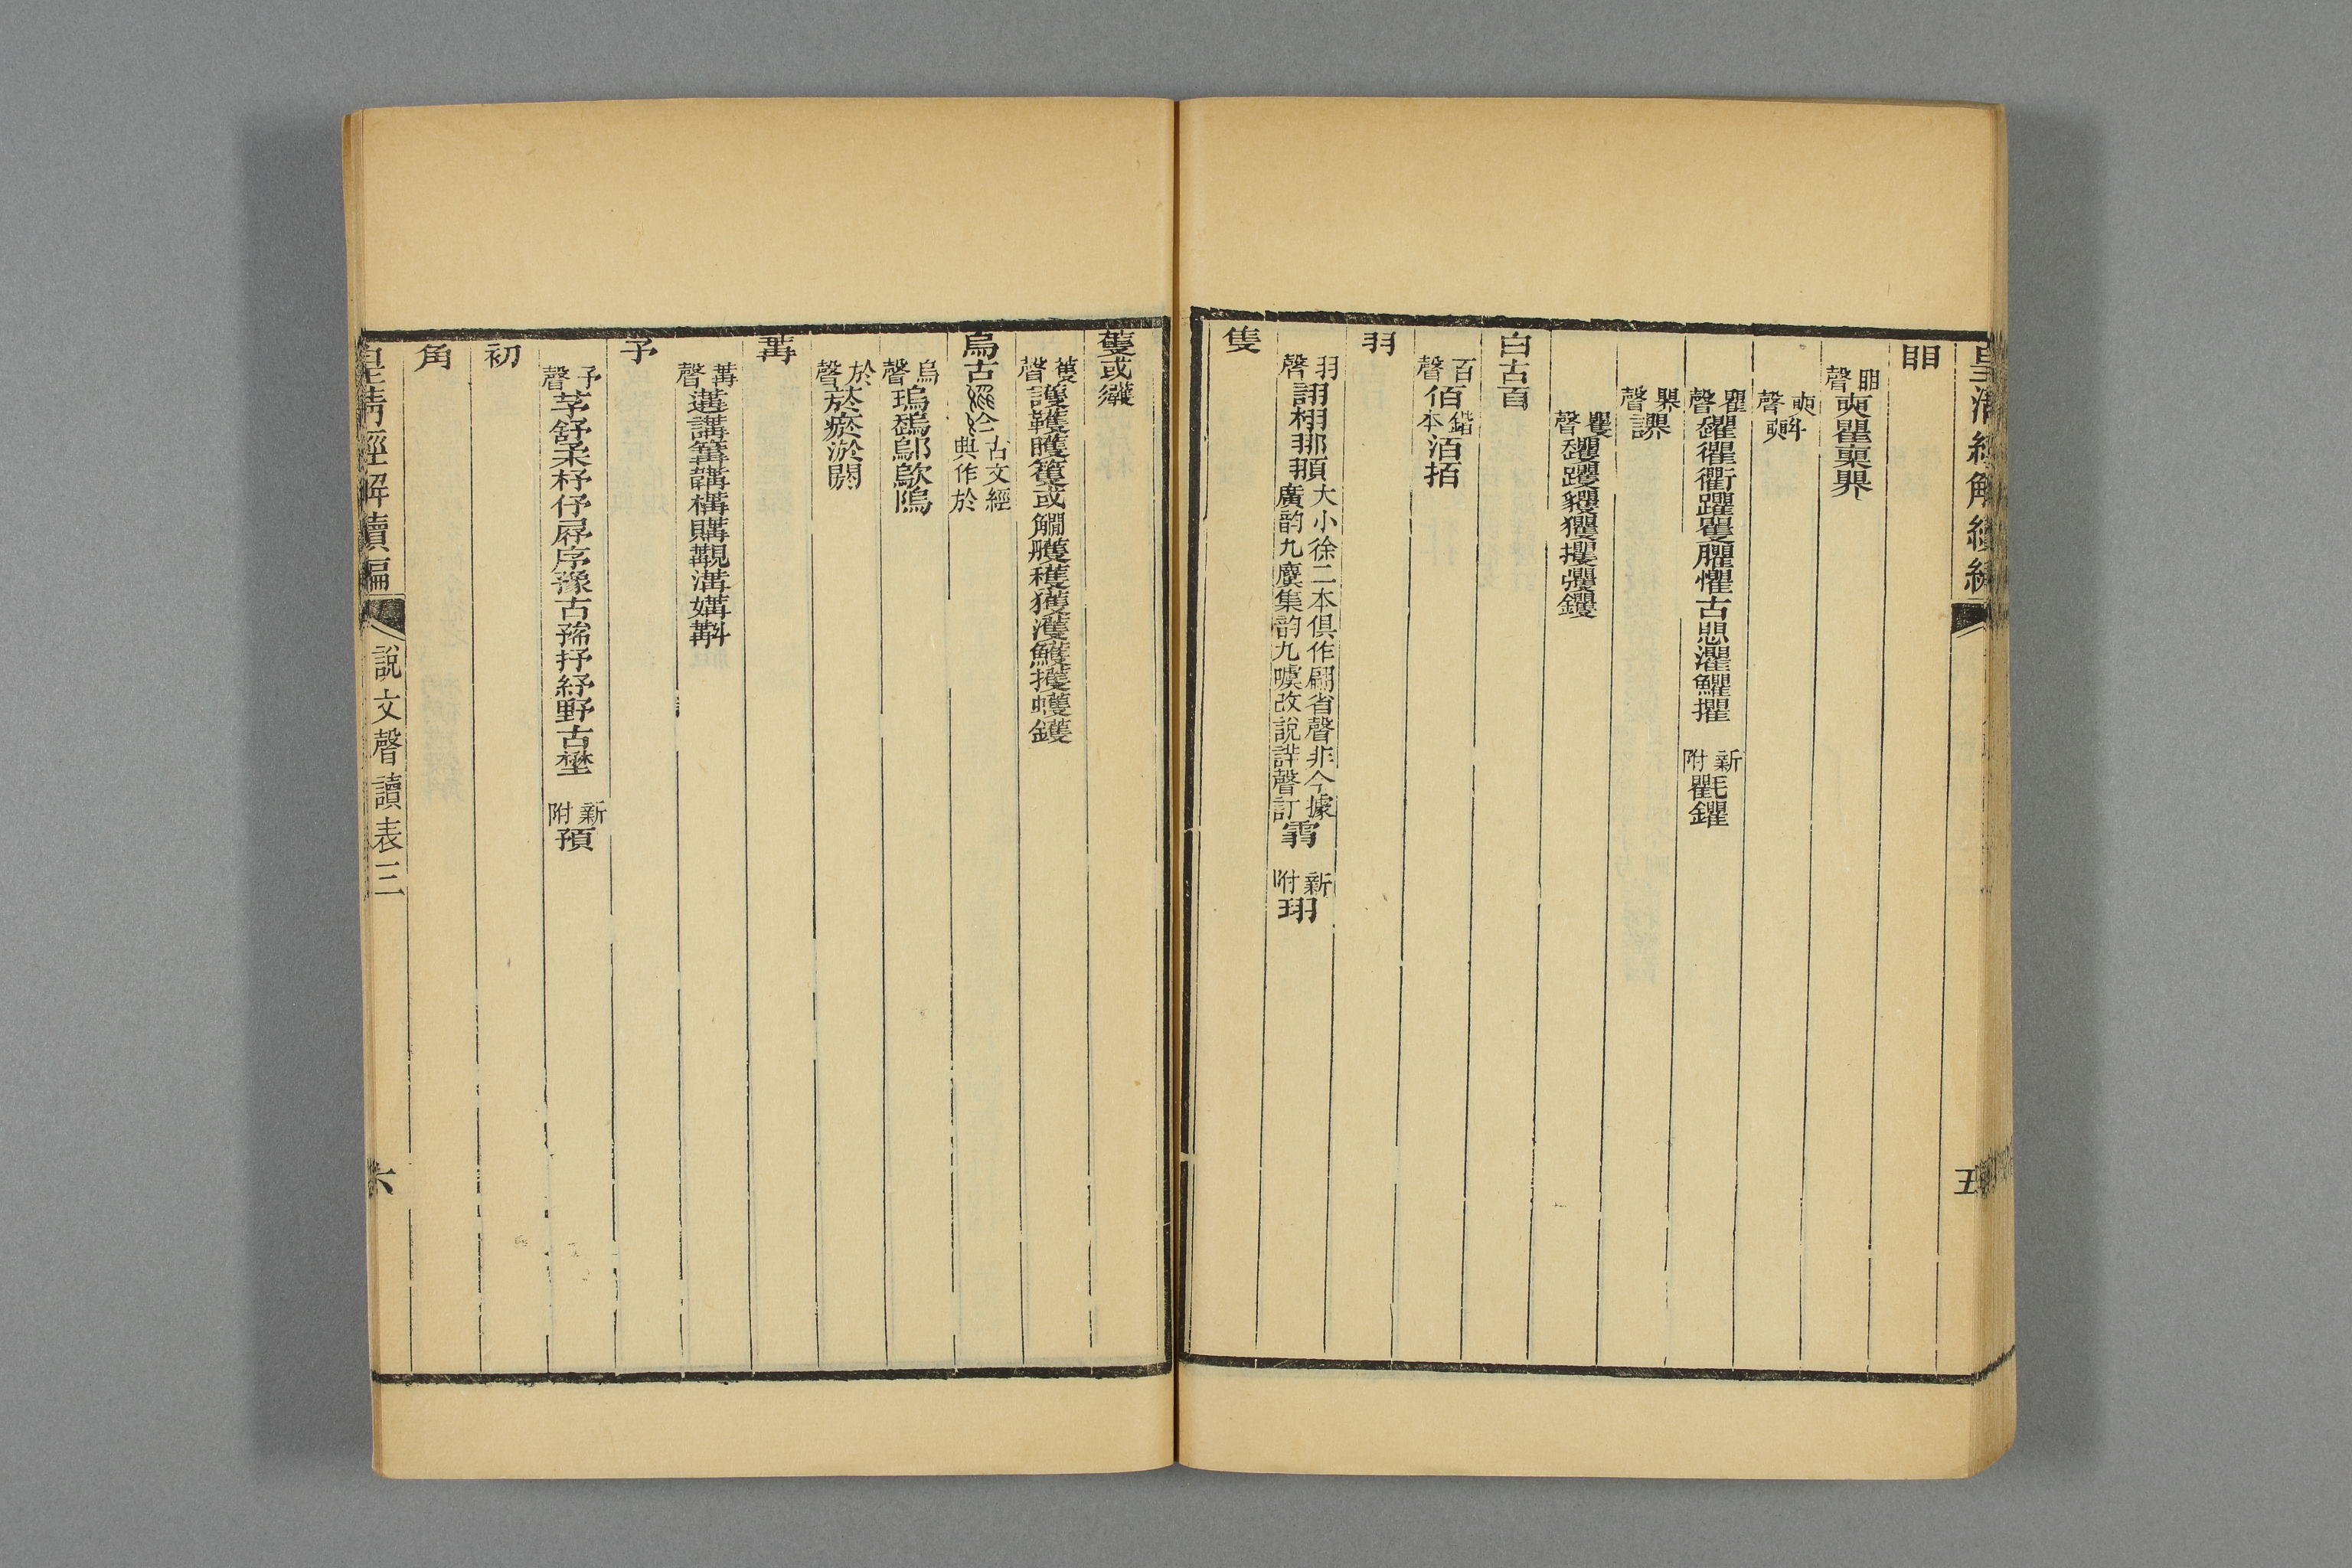 皇清經解續編
五
䀠
䀠聲奭瞿𡙇界
奭聲𣂁
瞿聲䂂忂衢躣矍臞懼古愳灈鱹擢 新附氍鑺
𡙇聲
矍聲彏躩貜玃攫彏钁
白古𦣺
百聲佰鍇本洦拍
羽
羽聲詡栩䢼頨大小徐二本俱作翩省聲非今據廣韵九麌集韵九噳改說詳聲訂䨞 新附珝
隻
蒦或彠
蒦聲護韄矆籆或𧤽臒穫獲濩鱯擭蠖鑊
烏古於古文經典作於
烏聲瑦䃖鄔歍隖
於聲菸瘀淤閼
冓
冓聲遘講篝韝構購覯溝媾斠
予
予聲芧舒柔杼伃㝷序豫古𧰲抒紓野古壄 新附預
初
角
皇清經解續編
說文聲讀表三
六